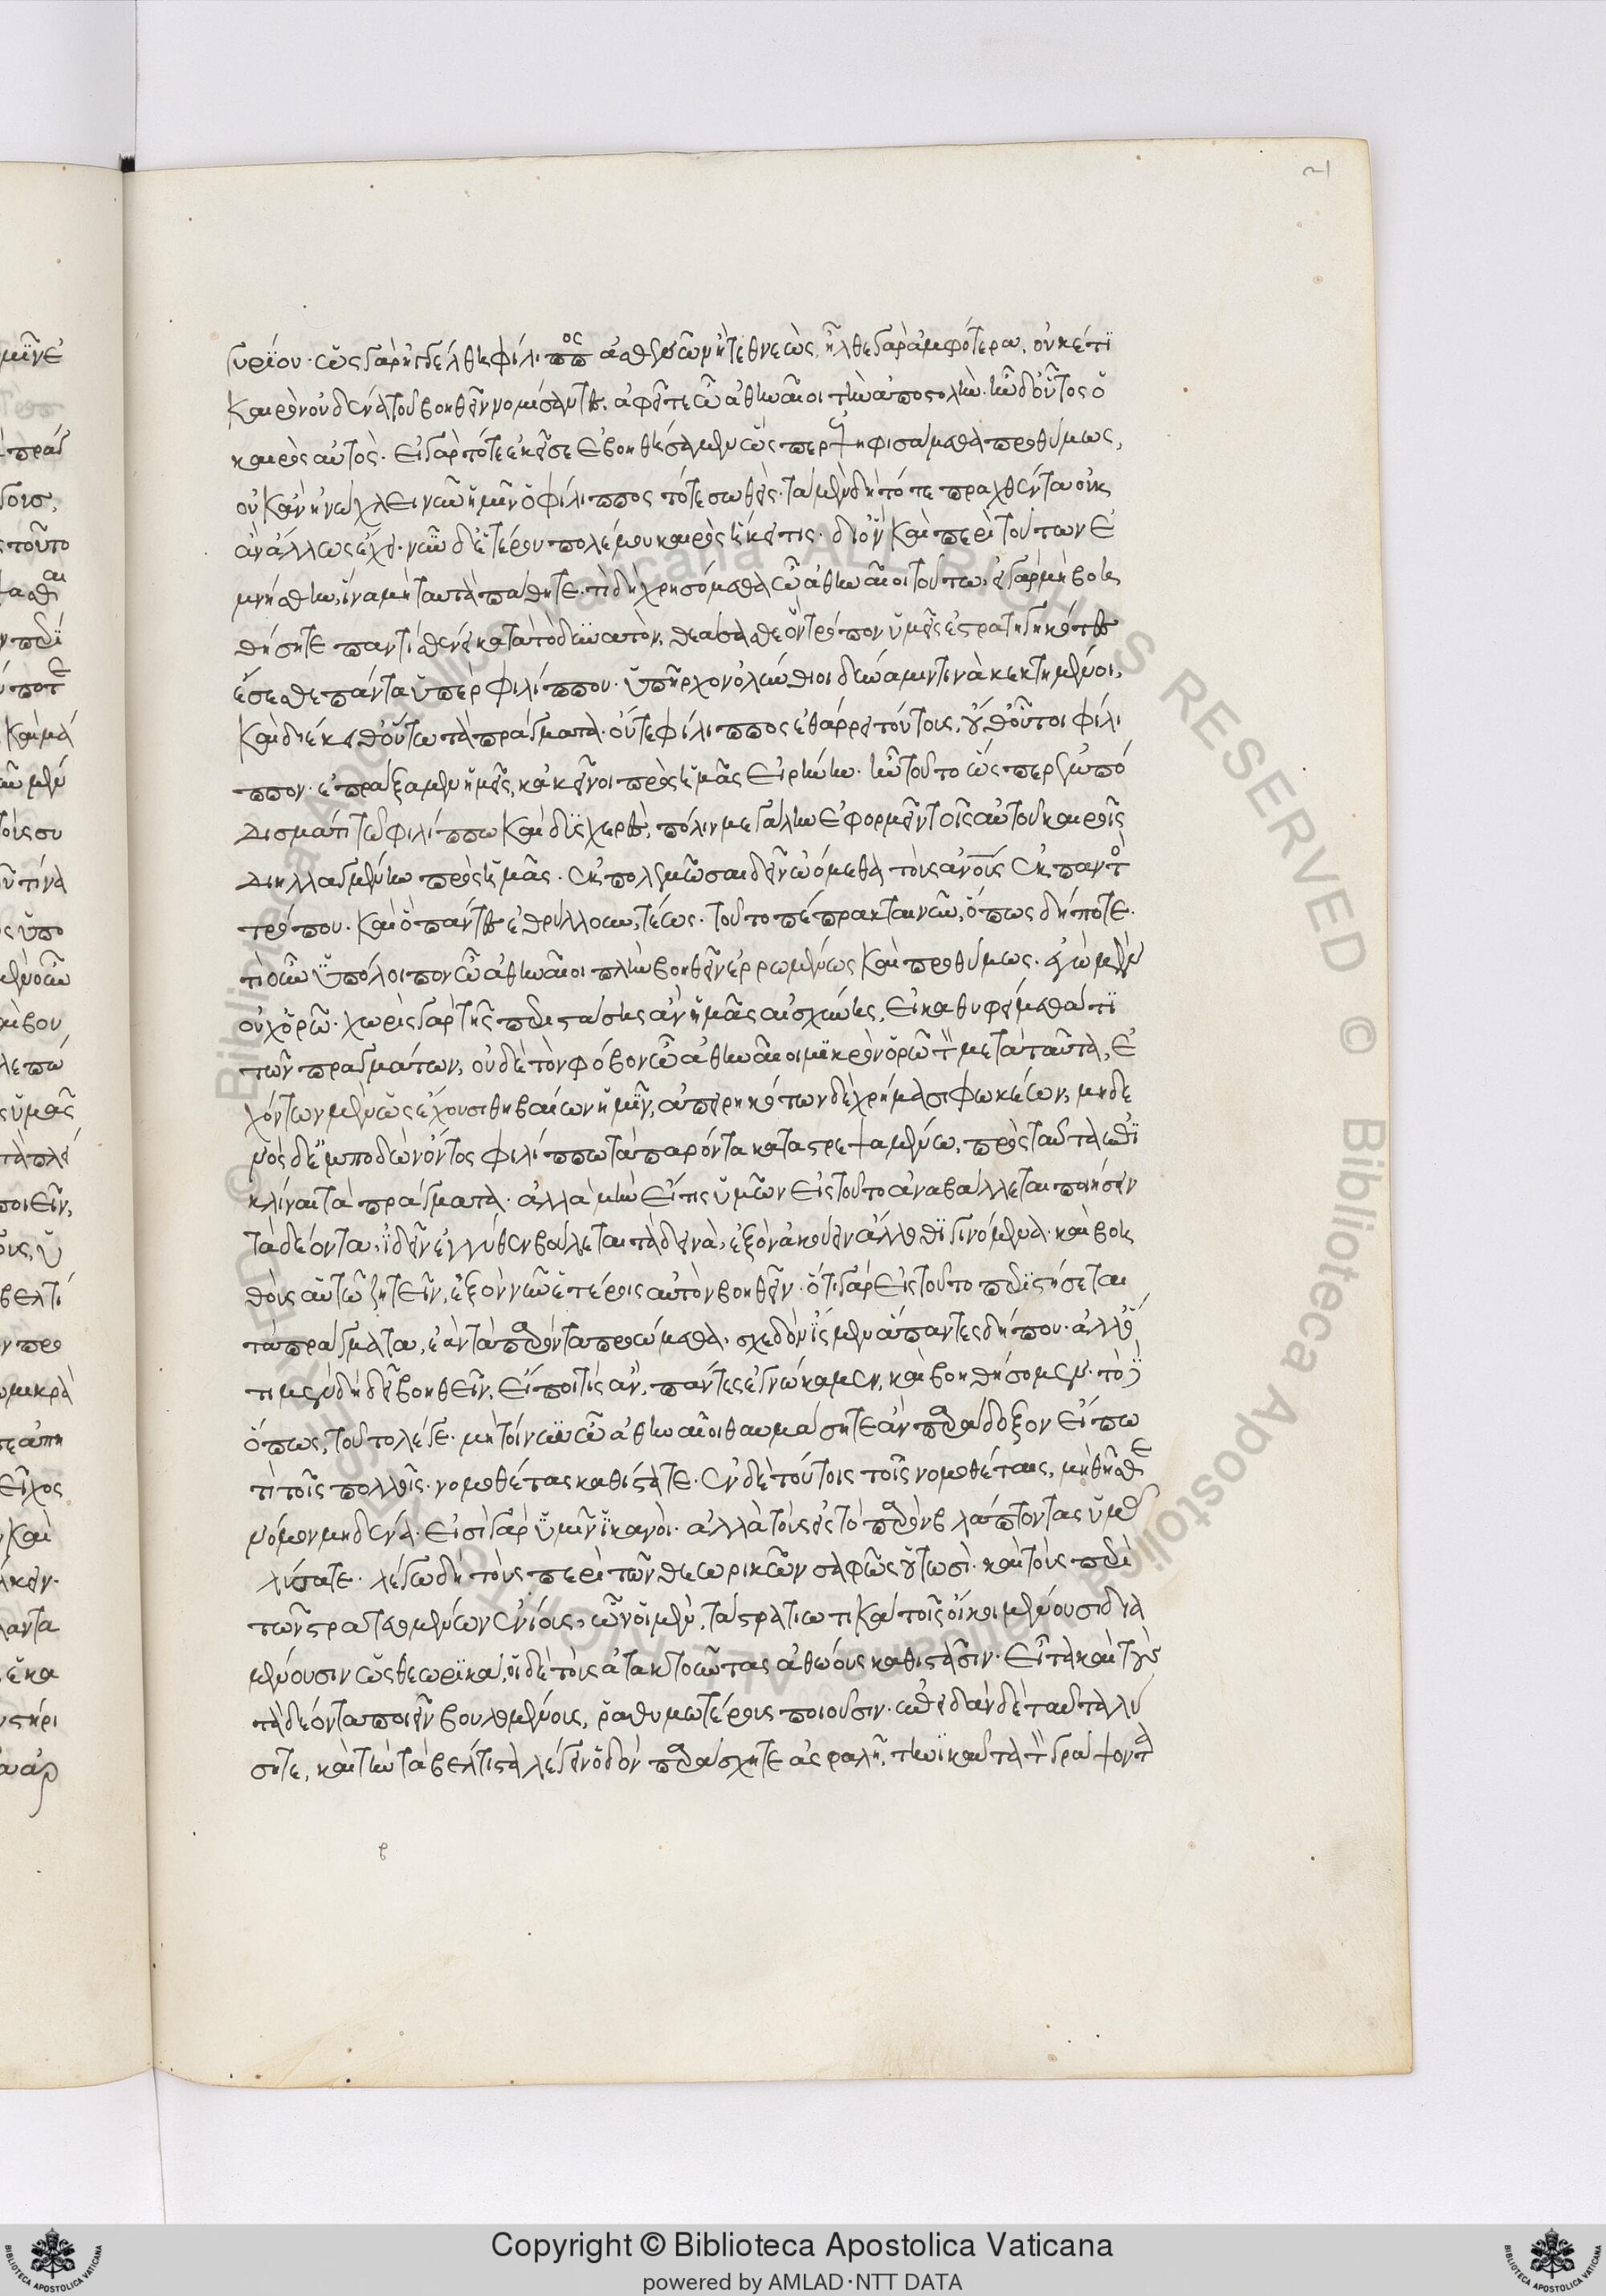 γυρίου· ὡς γὰρ ἠγγέλθη φίλιππος ἀσθενῶν ἢ τεθνεὼς, ἦλθε γὰρ ἀμφότερα, οὐκέτι
καιρὸν οὐδένα τοῦ βοηθεῖν νομίσαντες, ἀφεῖτε ὦ ἀθηναῖοι τὴν ἀποστολὴν. ἦν δ' οὗτος ὁ
καιρὸς αὐτὸς. εἰ γὰρ τότε ἐκεῖσε ἐβοηθήσαμεν ὥσπερ ἐψηφισάμεθα προθύμως,
οὐκ ἂν ἠνώχλει νῦν ἡμῖν ὁ φίλιππος τότε σωθείς. τὰ μὲν δὴ τότε πραχθέντα οὐκ
ἂν ἄλλως ἔχει. νῦν δ' ἑτέρου πολέμου καιρὸς ἥκει τις. δι' ὃν καὶ περὶ τούτων ἐ
μνήσθην, ἵνα μὴ ταυτὰ πάθητε. τί δὴ χρησόμεθα ὦ ἀθηναῖοι τούτω, εἰ γὰρ μὴ βοη
θήσητε παντὶ σθένει κατὰ τὸ δυνατὸν, θεάσασθε ὃν τρόπον ὑμεῖς ἐστρατηγηκότες
ἔσεσθε πάντα ὑπὲρ φιλίππου. ὑπῆρχον ὀλύνθιοι δύναμιν τινὰ κεκτημένοι,
καὶ διέκειθ' οὕτω τὰ πράγματα. οὔτε φίλιππος ἐθάρρει τούτοις, οὔθ' οὗτοι φίλι
ππον. ἐπράξαμεν ἡμεῖς, κἀκεῖνοι πρὸς ἡμᾶς εἰρήνην. ἦν τοῦτο ὥσπερ ἐμπό
δισμά τι τῷ φιλίππω καὶ δυσχερὲς, πόλιν μεγάλην ἐφορμεῖν τοῖς αὐτοῦ καιροῖς
διηλλαγμένην πρὸς ἡμᾶς. ἐκπολεμῶσαι δεῖν ὠόμεθα τοὺς ἀνοῦς ἐκ παντὸς
τρόπου. καὶ ὃ πάντες ἐθρύλλουν, τέως. τοῦτο πέπρακται νῦν, ὅπως δήποτε.
τί οὖν ὑπόλοιπον ὦ ἀθηναῖοι πλὴν βοηθεῖν ἐρρωμένως καὶ προθύμως. ἐγὼ μὲν
οὐχ ὁρῶ. χωρὶς γὰρ τῆς περιστάσης ἂν ἡμᾶς αἰσχύνης, εἰ καθυφείμεθά τι
τῶν πραγμάτων, οὐδὲ τὸν φόβον ὦ ἀθηναῖοι μικρὸν ὁρῶ τὸν μετὰ ταῦτα, ἐ
χόντων μὲν ὡς ἔχουσι θηβαίων ἡμῖν, ἀπειρηκότων δὲ χρήμασι φωκέων, μηδε
νὸς δ' ἐμποδὼν ὄντος φιλίππω τὰ παρόντα καταστρεψαμένω, πρὸς ταῦτα ἐπι
κλίναι τὰ πράγματα. ἀλλὰ μὴν εἴ τις ὑμῶν εἰς τοῦτο ἀναβάλλεται ποιήσειν
τὰ δέοντα, ἰδεῖν ἐγγύθεν βούλεται τὰ δεινὰ, ἐξὸν ἀκούειν ἄλλοθι γινόμενα. καὶ βοη
θοὺς αὑτῶ ζητεῖν, ἐξὸν νῦν ἑτέροις αὐτὸν βοηθεῖν. ὅτι γὰρ εἰς τοῦτο περιστήσεται
τὰ πράγματα, ἐὰν τὰ παρόντα προώμεθα, σχεδὸν ἴσμεν ἅπαντες δήπου. ἀλλ' ὅ
τι μὲν δὴ δεῖ βοηθεῖν, εἴποι τίς ἂν, πάντες ἐγνώκαμεν, καὶ βοηθήσομεν. τὸ δ'
ὅπως, τοῦτο λέγε. μὴ τοίνυν ὦ ἀθηναῖοι θαυμάσητε ἂν παράδοξον εἴπω
τὶ τοῖς πολλοῖς. νομοθέτας καθίστατε. ἐν δὲ τούτοις τοῖς νομοθέταις, μὴ θῆσθε
νόμον μηδένα. εἰσὶ γὰρ ὑμῖν ἱκανοὶ. ἀλλὰ τοὺς εἰς τὸ παρὸν βλάπτοντας ὑμᾶς
λύσατε. λέγω δὴ τοὺς περὶ τῶν θεωρικῶν σαφῶς οὑτωσὶ. καὶ τοὺς περὶ
τῶν στρατευομένων ἐνίους, ὧν οἱ μὲν, τὰ στρατιωτικὰ τοῖς οἴκοι μένουσι δια
νέμουσιν ὡς θεωρικά, οἱ δὲ τοὺς ἀτακτοῦντας ἀθώους καθιστᾶσιν. εἶτα καὶ τοὺς
τὰ δέοντα ποιεῖν βουλομένους, ῥαθυμωτέρους ποιοῦσιν. ἐπειδὰν δὲ ταῦτα λύ
σητε, καὶ τὴν τὰ βέλτιστα λέγειν ὁδὸν παράσχητε ἀσφαλῆ, τηνικαῦτα τὸν γράψοντα